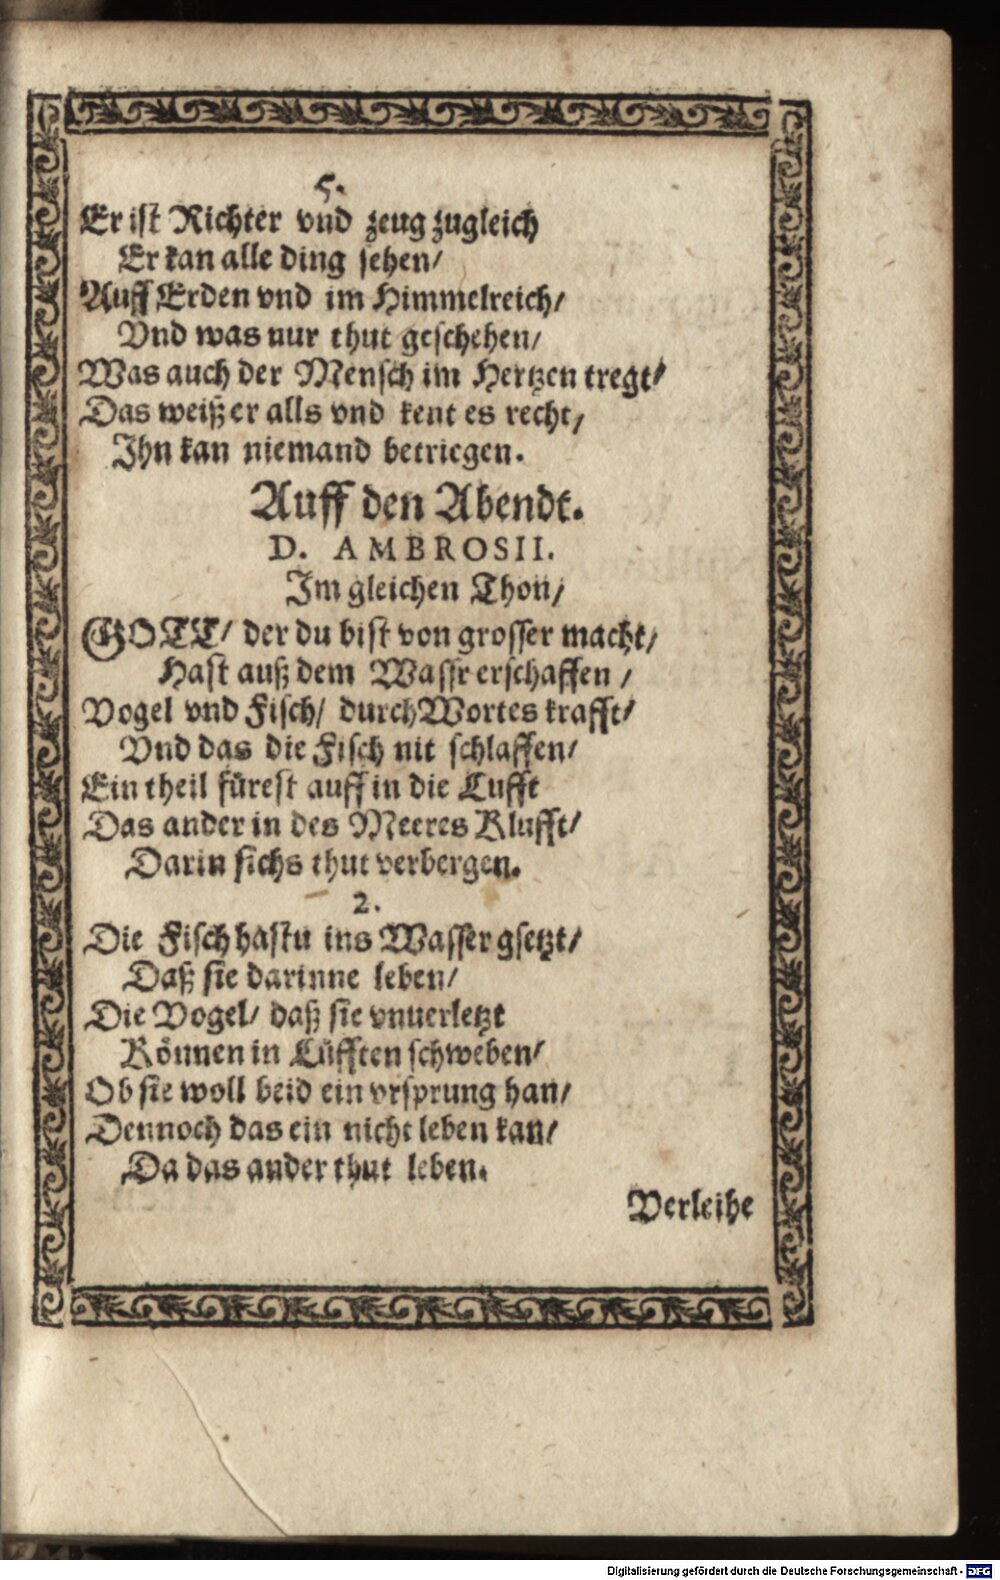 5.
Er ist Richter vnd zeug zugleich
Er kan alle ding sehen/
Auff Erden vnd im Himmelreich/
Vnd was nur thut geschehen/
Was auch der Mensch im Hertzen tregt/
Das weiß er alls vnd kent es recht/
Ihn kan niemand betriegen.
Auff den Abendt.
D. AMBROSII.
Im gleichen Thon/
GOTT/ der du bist von grosser macht/
Hast auß dem Wassr erschaffen/
Vogel vnd Fisch/ durch Wortes krafft/
Vnd das die Fisch nit schlaffen/
Ein theil fürest auff in die Lufft
Das ander in des Meeres Klufft/
Darin sichs thut verbergen.
2.
Die Fisch hastu ins Wasser gsetzt/
Daß sie darinne leben/
Die Vogel/ daß sie vnuerletzt
Können in Lüfften schweben/
Ob sie woll beid ein vrsprung han/
Dennoch das ein nicht leben kan/
Da das ander thut leben.
Verleihe
Digitalisierung gefördert durch die Deutsche Forschungsgemeinschaft - DFG